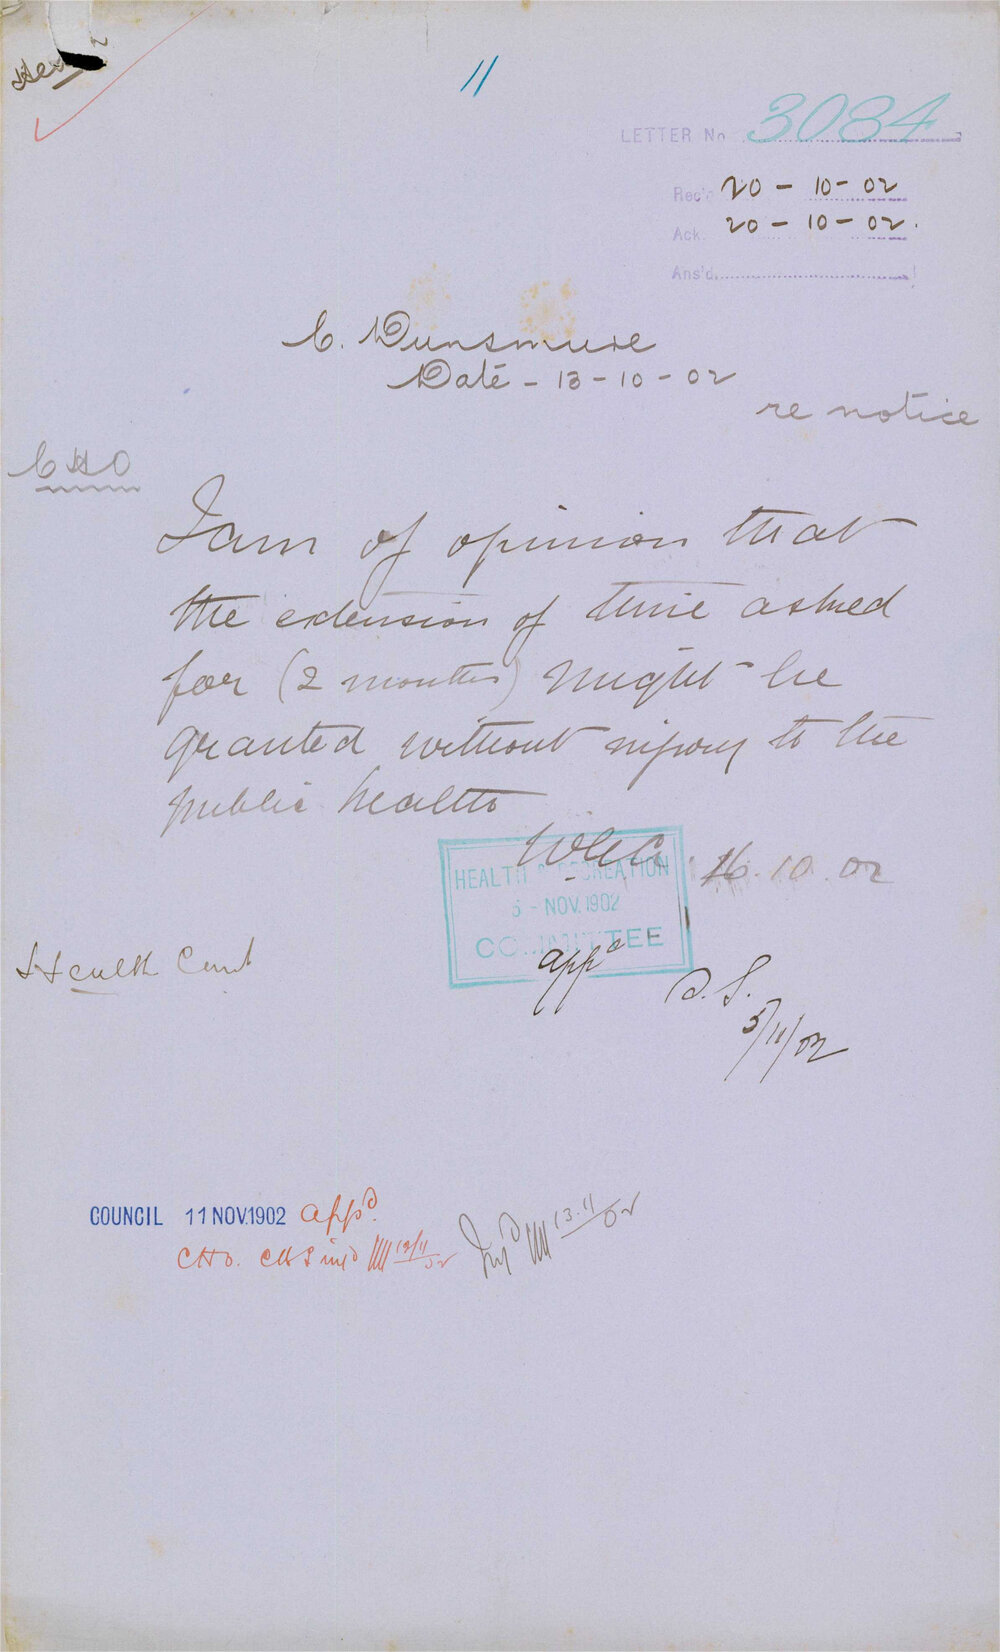 11
LETTER No 3084
Rec'd 20-10-02
Ack. 20-10-02.
Ans'd
C. Dunsmure
Date - 13-10-02
re notice
CHO
I am of opinion that
the extension of time asked
for (2 months) might be
granted without injury to the
public health
16.10.02
HEALTH & RECREATION
5 - NOV. 1902
COMMITTEE
appd
D.S.
5/11/02
Health Comt
COUNCIL 11 NOV. 1902 appd.
CHO. CHS infd 12/11/02
Infd 13.11/02